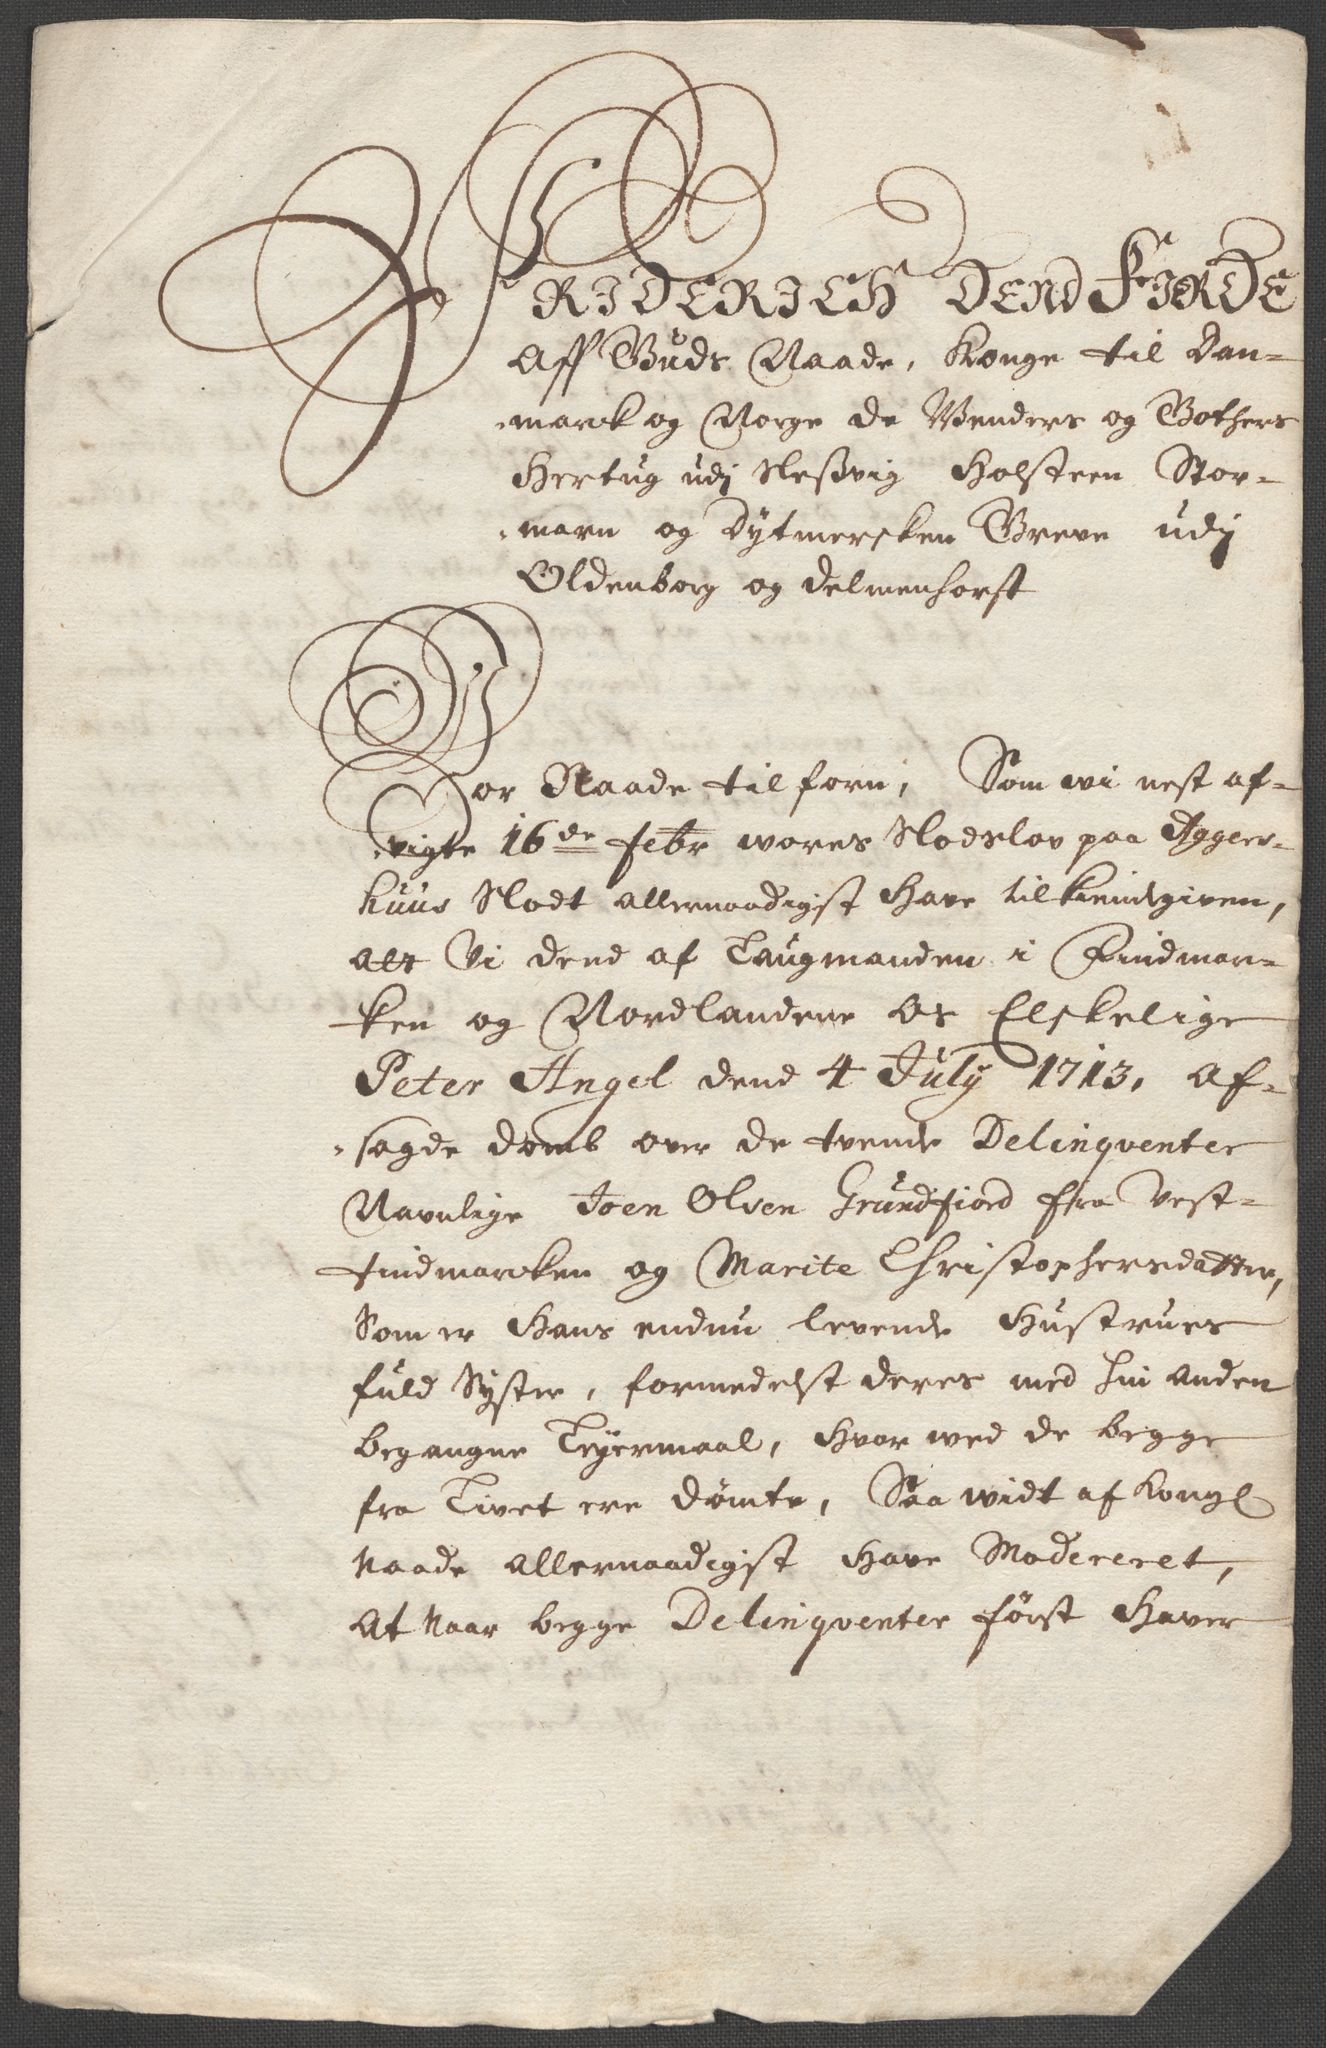 FRIDERICH DEND FIERDE
Aff Guds Naade, Konge til Dan-
marck og Norge de Wenders og Gothers
Hertug udj Sleßvig Holsteen Stor-
marn og Dytmersken Greve udj
Oldenborg og Delmenhorst
Vor Naade tilforn, Som wi nest af-
vigte 16de Febr wores Slodslov paa Agger-
huus Slodt allernaadigst Have tilkiendgiven,
att Vi dend af Laugmanden i Findmar-
ken og Nordlandene Os Elskelige
Peter Angel dend 4 July 1713, af-
sagde domb over de tvende Delinqventer
Navnlige Joen Olsen Grundfiord fra Vest-
findmarcken og Marite Christophersdatter,
Som er Hans endnu levende Hustrues
fuld Syster, formedelst deres med hin anden
begangne Leyermaal, Hvor wed de begge
fra Livet ere dömte, Saa widt af Kongl
Naade allernaadigst Have Modereret,
At Naar begge Delinqventer först Haver